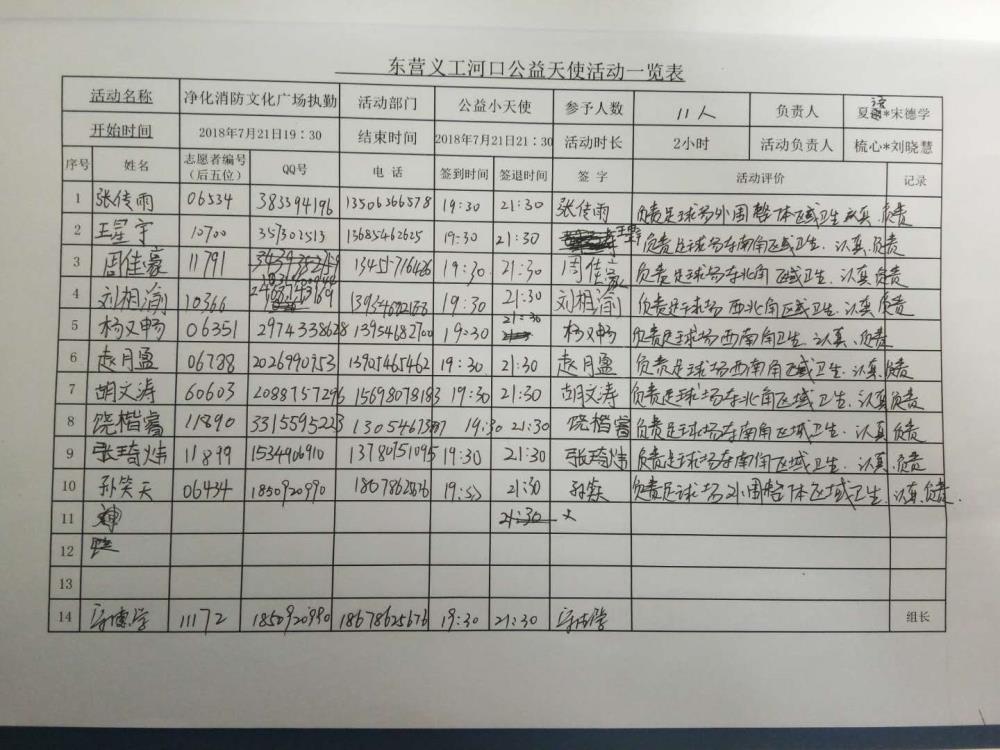 东营义工河口公益天使活动一览表
活动名称 净化消防文化广场执勤 活动部门 公益小天使 参予人数 11人 负责人 夏语*宋德学
开始时间 2018年7月21日19:30 结束时间 2018年7月21日21:30 活动时长 2小时 活动负责人 梳心*刘晓慧
序号 姓名 志愿者编号（后五位） QQ号 电话 签到时间 签退时间 签字 活动评价 记录
1 张传雨 06534 383594196 13506366578 19:30 21:30 张传雨 负责足球场外周整体区域卫生认真.负责
2 王星宇 10700 357302513 13685462625 19:30 21:30 负责足球场东南角区域卫生.认真.负责
3 周佳豪 11791 13455716426 19:30 21:30 周佳豪 负责足球场东北角区域卫生.认真负责
4 刘相渝 10366 19:30 21:30 刘相渝 负责足球场西北角区域卫生.认真负责
5 杨又畅 06351 2974338628 13954682700 19:30 21:30 杨又畅 负责足球场西南角卫生.认真.负责
6 赵月盈 06788 2026990953 13905465462 19:30 21:30 赵月盈 负责足球场西南角区域卫生.认真.负责
7 胡文涛 60603 2088757296 15698078183 19:30 21:30 胡文涛 负责足球场东北角区域卫生.认真负责
8 饶楷睿 11890 3315595223 19:30 21:30 饶楷睿 负责足球场东南角区域卫生.认真负责
9 张琦炜 11899 1534906910 13780751095 19:30 21:30 张琦炜 负责足球场东南角区域卫生.认真.负责
10 孙笑天 06434 1850920990 19:30 21:30 孙笑天 负责足球场外周整体区域卫生.认真.负责.
11 21:30
12
13
14 宋德学 11172 1850920990 18678625676 19:30 21:30 宋德学 组长